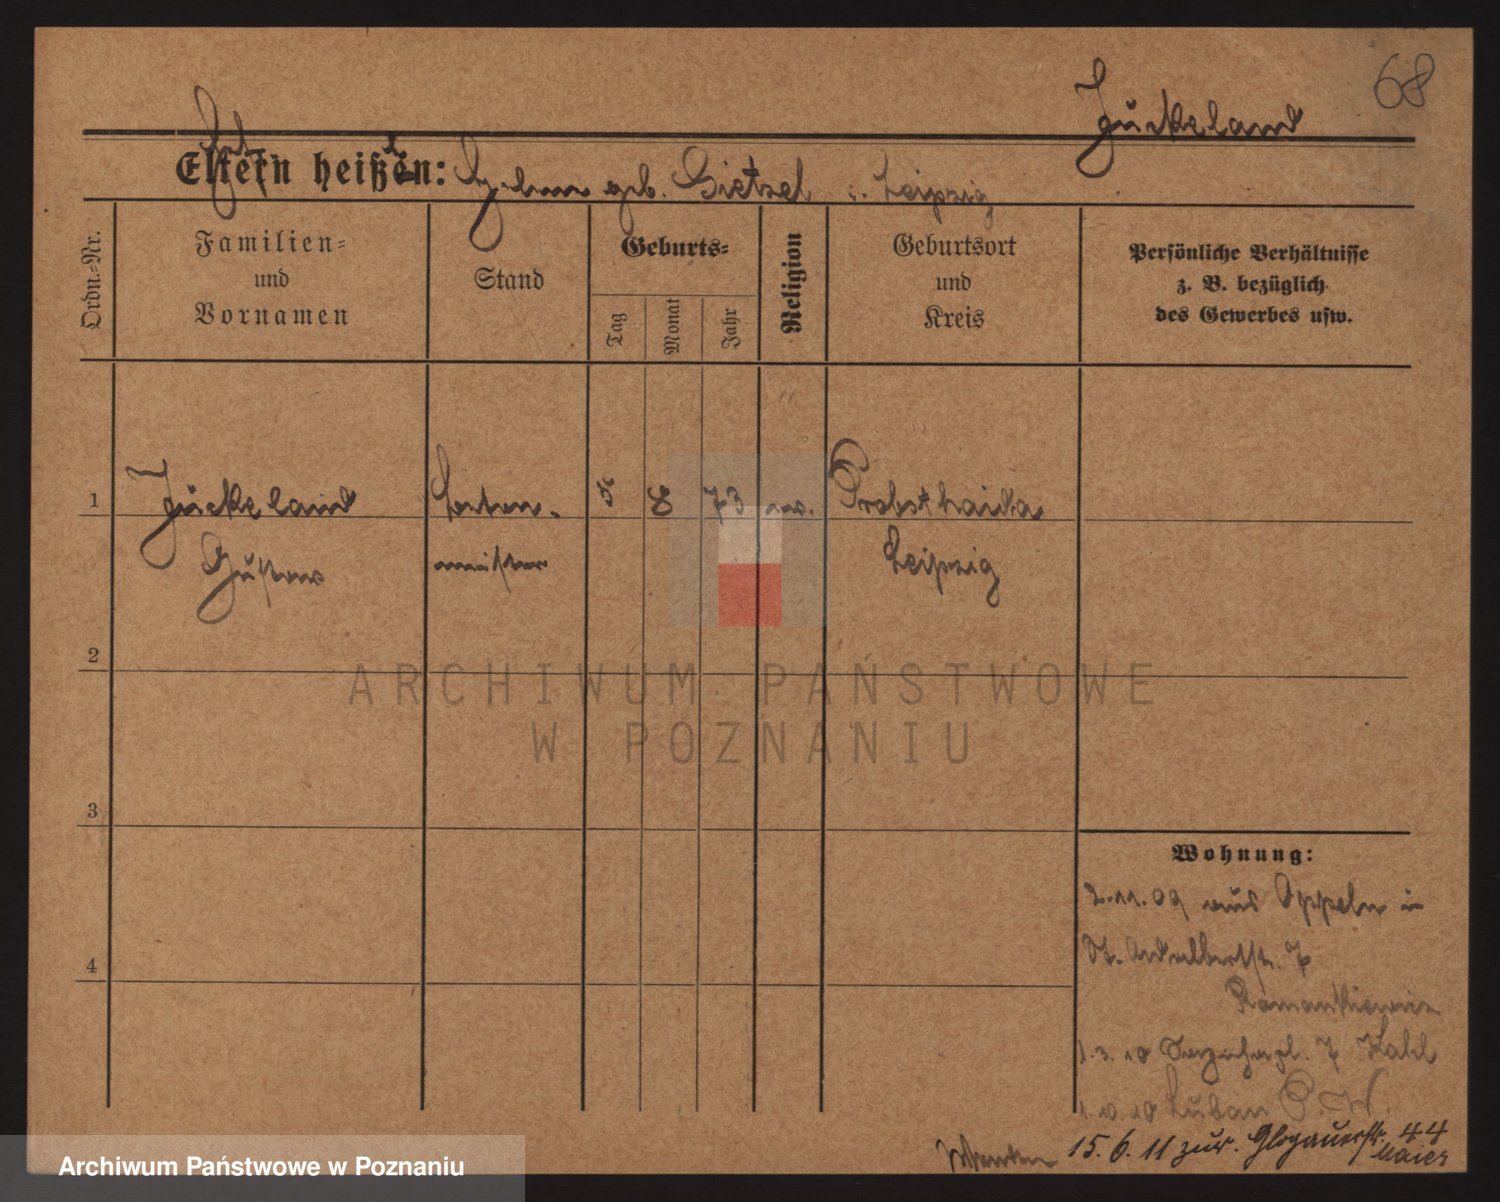 68
Jückeland
Eltern heißen: geb. Gietzel i. Leipzig
Ordn.-Nr.
Familien-
und
Vornamen
Stand
Geburts-
Tag
Monat
Jahr
Religion
Geburtsort
und
Kreis
Persönliche Verhältnisse
z. B. bezüglich
des Gewerbes usw.
1
Jückeland
Gustav
meister
8 73 ev.
Probstheida
Leipzig
2
ARCHIWUM PAŃSTWOWE
W POZNANIU
3
Wohnung:
2.11.09 aus Oppeln in
St. Adalbertstr. 7
4
1.3.10 7 Kahl
1.10.10 Luban P.W.
15.6.11 zur. Glogauerstr. 44
Maier
Archiwum Państwowe w Poznaniu